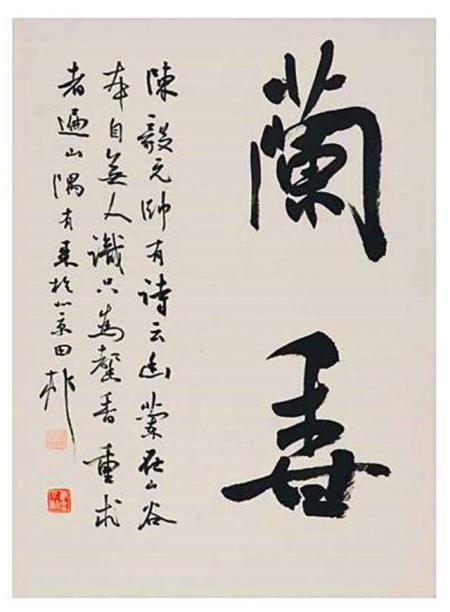 蘭香
陳毅元帥有诗云幽蘭在山谷
本自無人識只為馨香重求
者遍山隅有於北京田